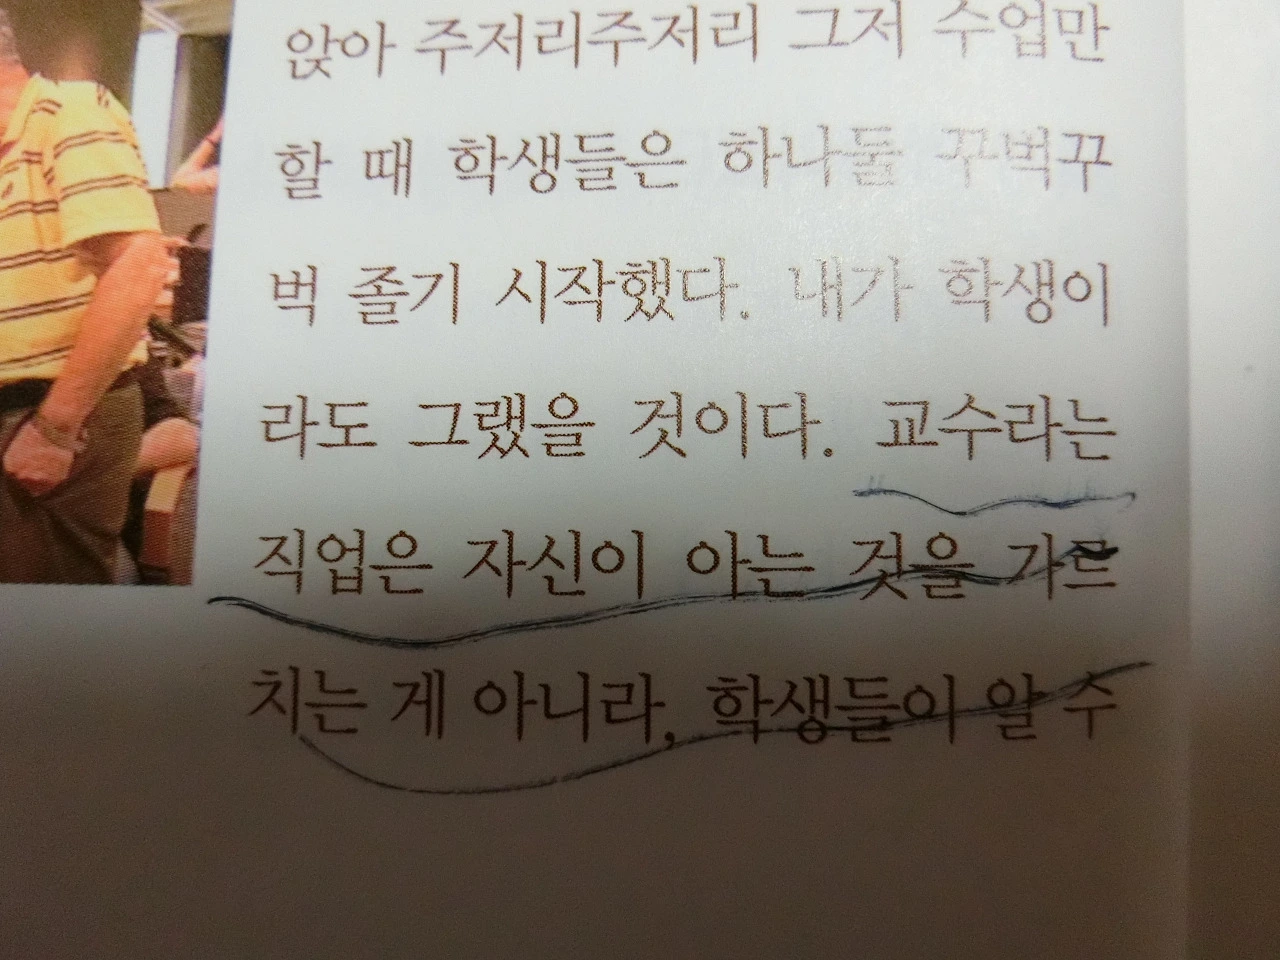 앉아 주저리주저리 그저 수업만
할 때 학생들은 하나둘 꾸벅꾸
벅 졸기 시작했다. 내가 학생이
라도 그랬을 것이다. 교수라는
직업은 자신이 아는 것을 가르
치는 게 아니라, 학생들이 알 수